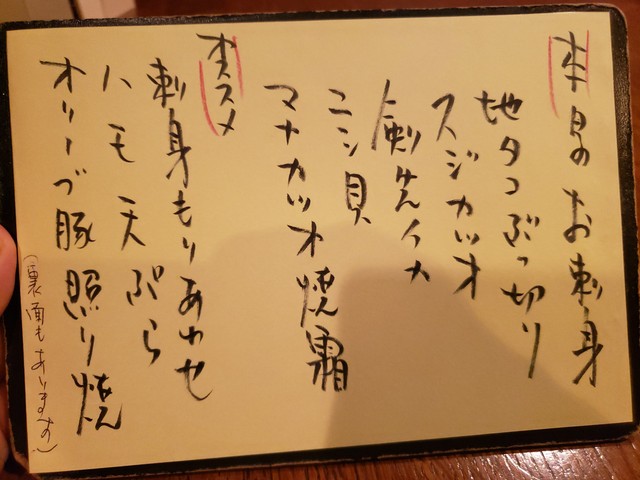 本日のお刺身
地タコぶつ切り
スジカツオ
剣先イカ
ニシ貝
マナカツオ焼霜
オススメ
刺身もりあわせ
ハモ天ぷら
オリーブ豚照り焼
(裏面もあります。)